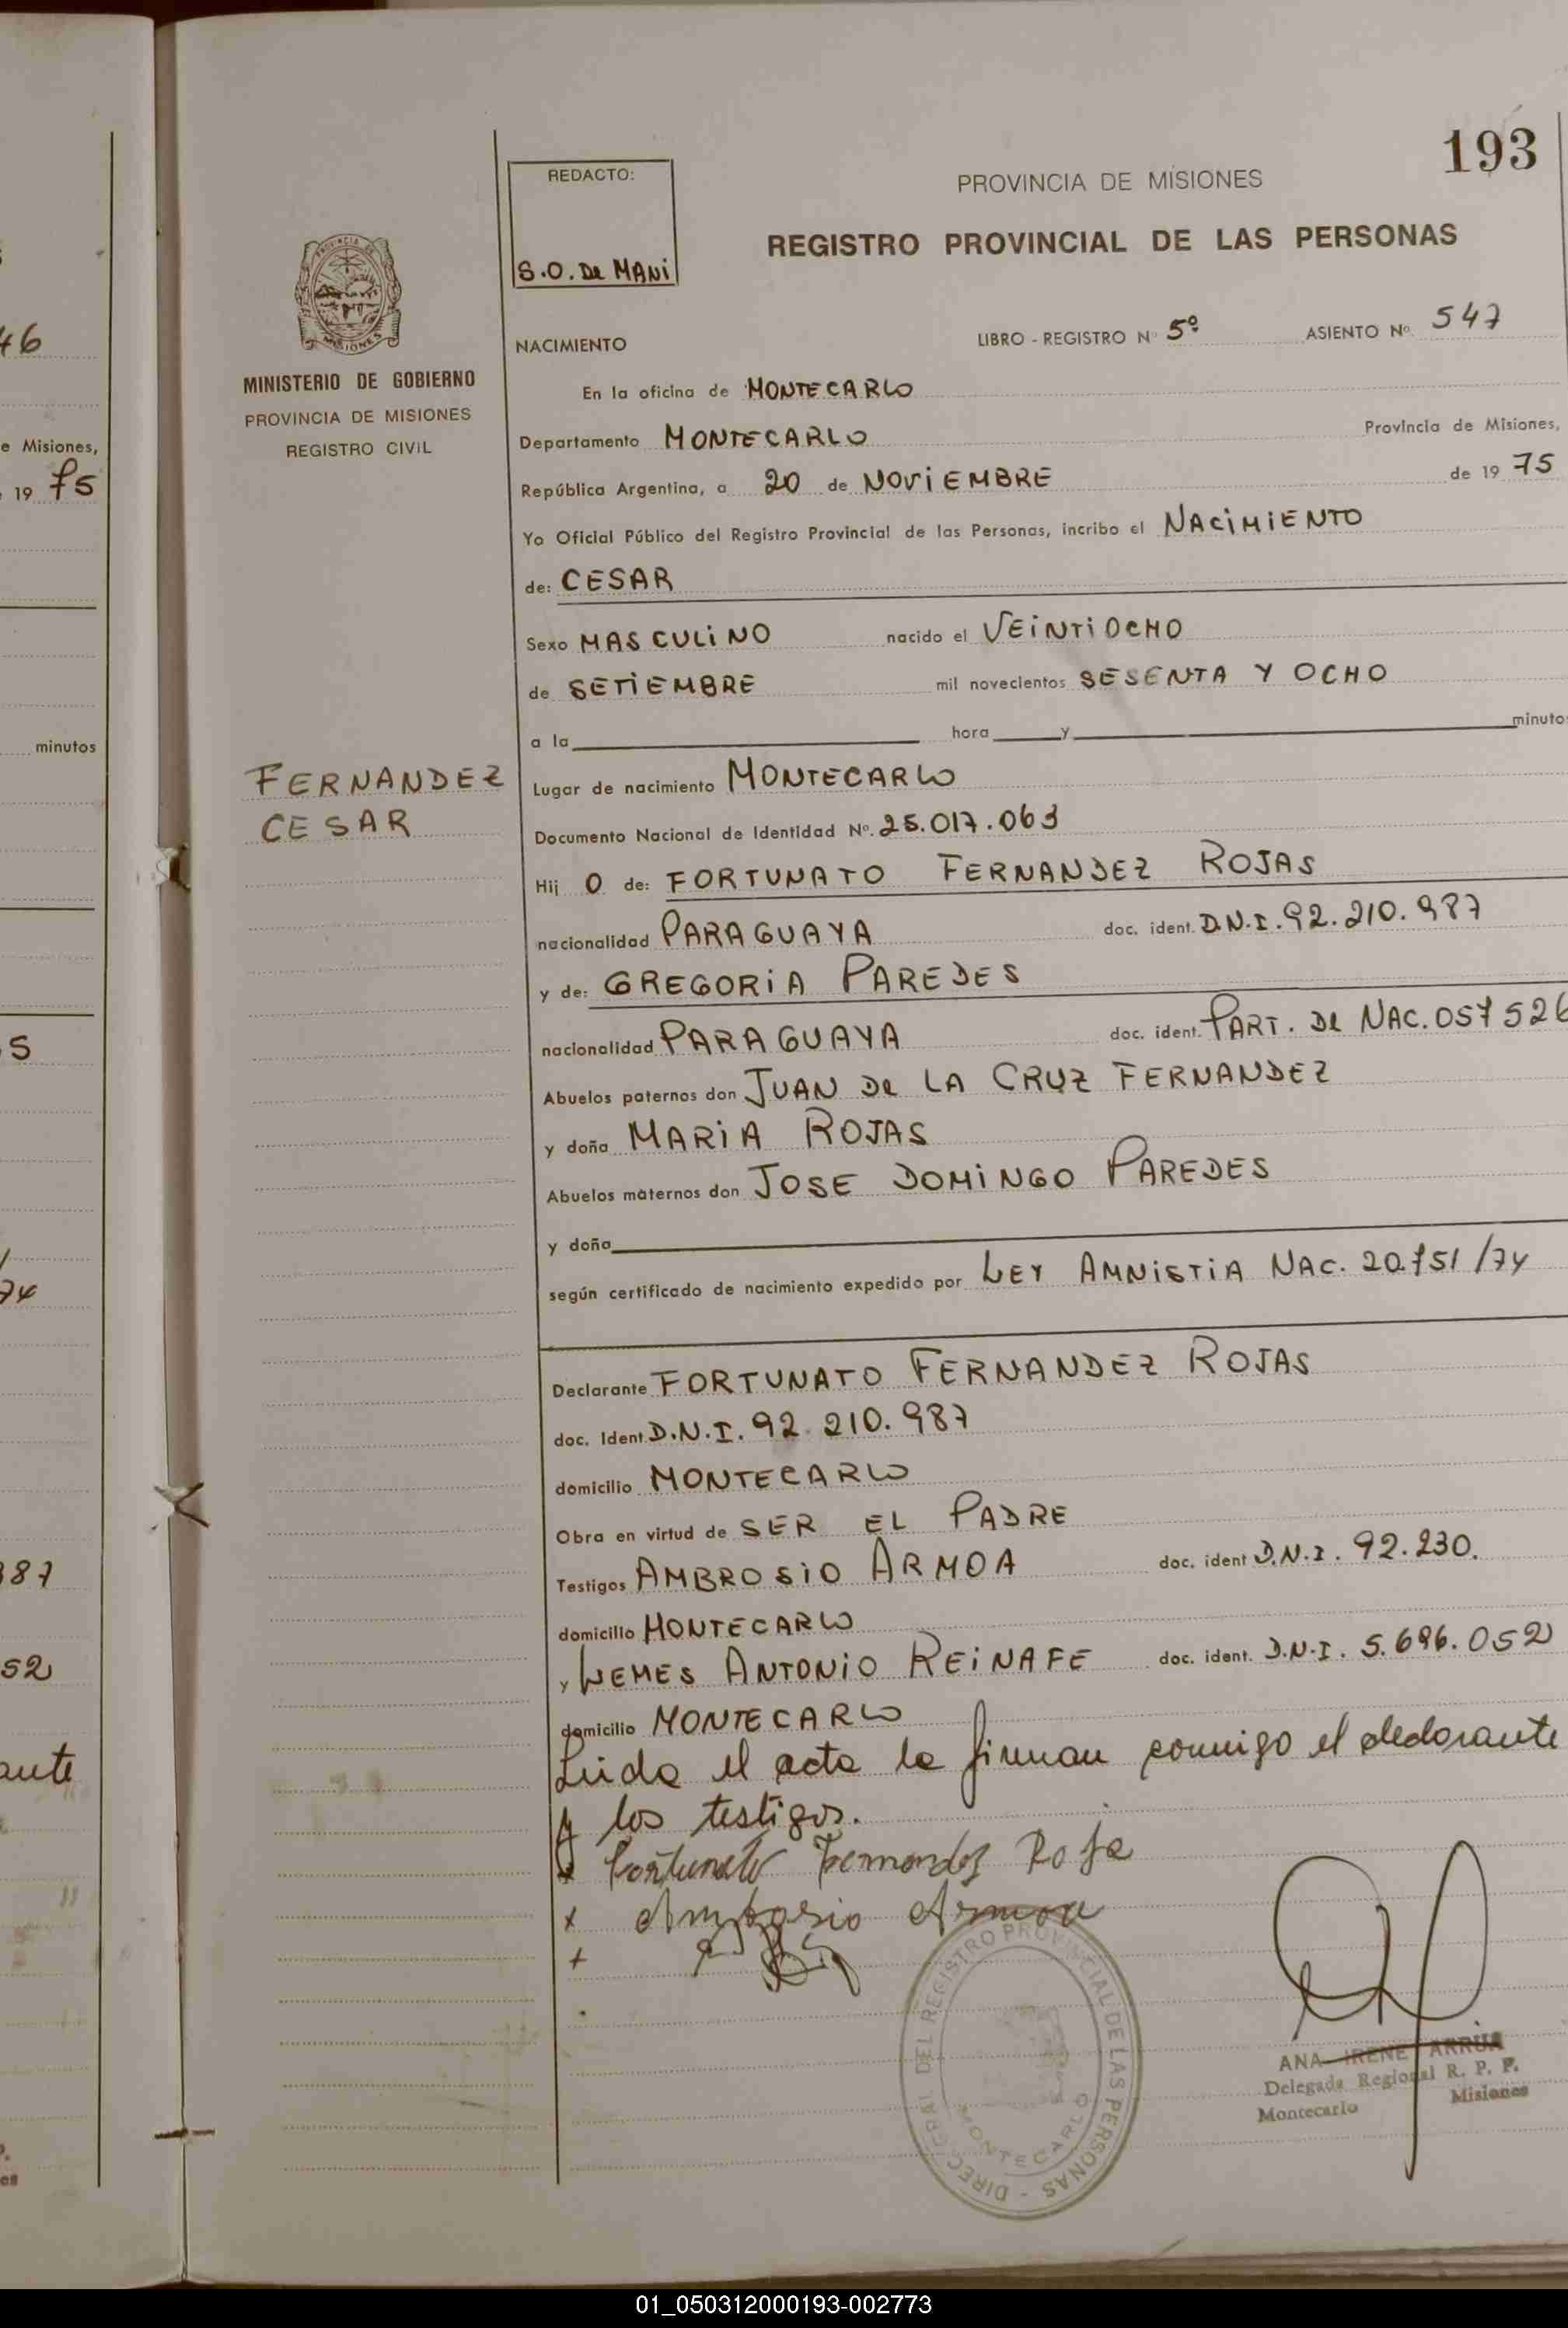 46
e Misiones,
19 75
minutos
5
74
387
52
ante
193
REDACTO:
S.O. De MANI
PROVINCIA DE MISIONES
REGISTRO PROVINCIAL DE LAS PERSONAS
PROVINCIA DE MISIONES
MINISTERIO DE GOBIERNO
PROVINCIA DE MISIONES
REGISTRO CIVIL
NACIMIENTO LIBRO - REGISTRO Nº 5º ASIENTO Nº 547
En la oficina de MONTECARLO
Departamento MONTECARLO Provincia de Misiones,
República Argentina, a 20 de NOVIEMBRE de 19 75
Yo Oficial Público del Registro Provincial de las Personas, incribo el NACIMIENTO
de: CESAR
Sexo MASCULINO nacido el VEINTIOCHO
de SETIEMBRE mil novecientos SESENTA Y OCHO
a la hora y minuto
FERNANDEZ
CESAR
Lugar de nacimiento MONTECARLO
Documento Nacional de Identidad Nº. 25.017.063
Hij O de: FORTUNATO FERNANDEZ ROJAS
nacionalidad PARAGUAYA doc. ident. D.N.I. 92.210.987
y de: GREGORIA PAREDES
nacionalidad PARAGUAYA doc. ident. PART. De NAC. 057526
Abuelos paternos don JUAN De LA CRUZ FERNANDEZ
y doña MARIA ROJAS
Abuelos maternos don JOSE DOMINGO PAREDES
y doña
según certificado de nacimiento expedido por LEY AMNISTIA NAC. 20751/74
Declarante FORTUNATO FERNANDEZ ROJAS
doc. Ident D.N.I. 92.210.987
domicilio MONTECARLO
Obra en virtud de SER EL PADRE
Testigos AMBROSIO ARMOA doc. ident D.N.I. 92.230.
domicilio MONTECARLO
y LEMES ANTONIO REINAFE doc. ident. D.N.I. 5.696.052
domicilio MONTECARLO
Leida el acta la firman conmigo el declarante
y los testigos.
x Fortunato Fernandez Roja
x Ambrosio Armoa
+
DIREC. GRAL. DEL REGISTRO PROVINCIAL DE LAS PERSONAS -
MONTECARLO
ANA IRENE ARRUA
Delegada Regional R. P. P.
Montecarlo Misiones
01_050312000193-002773